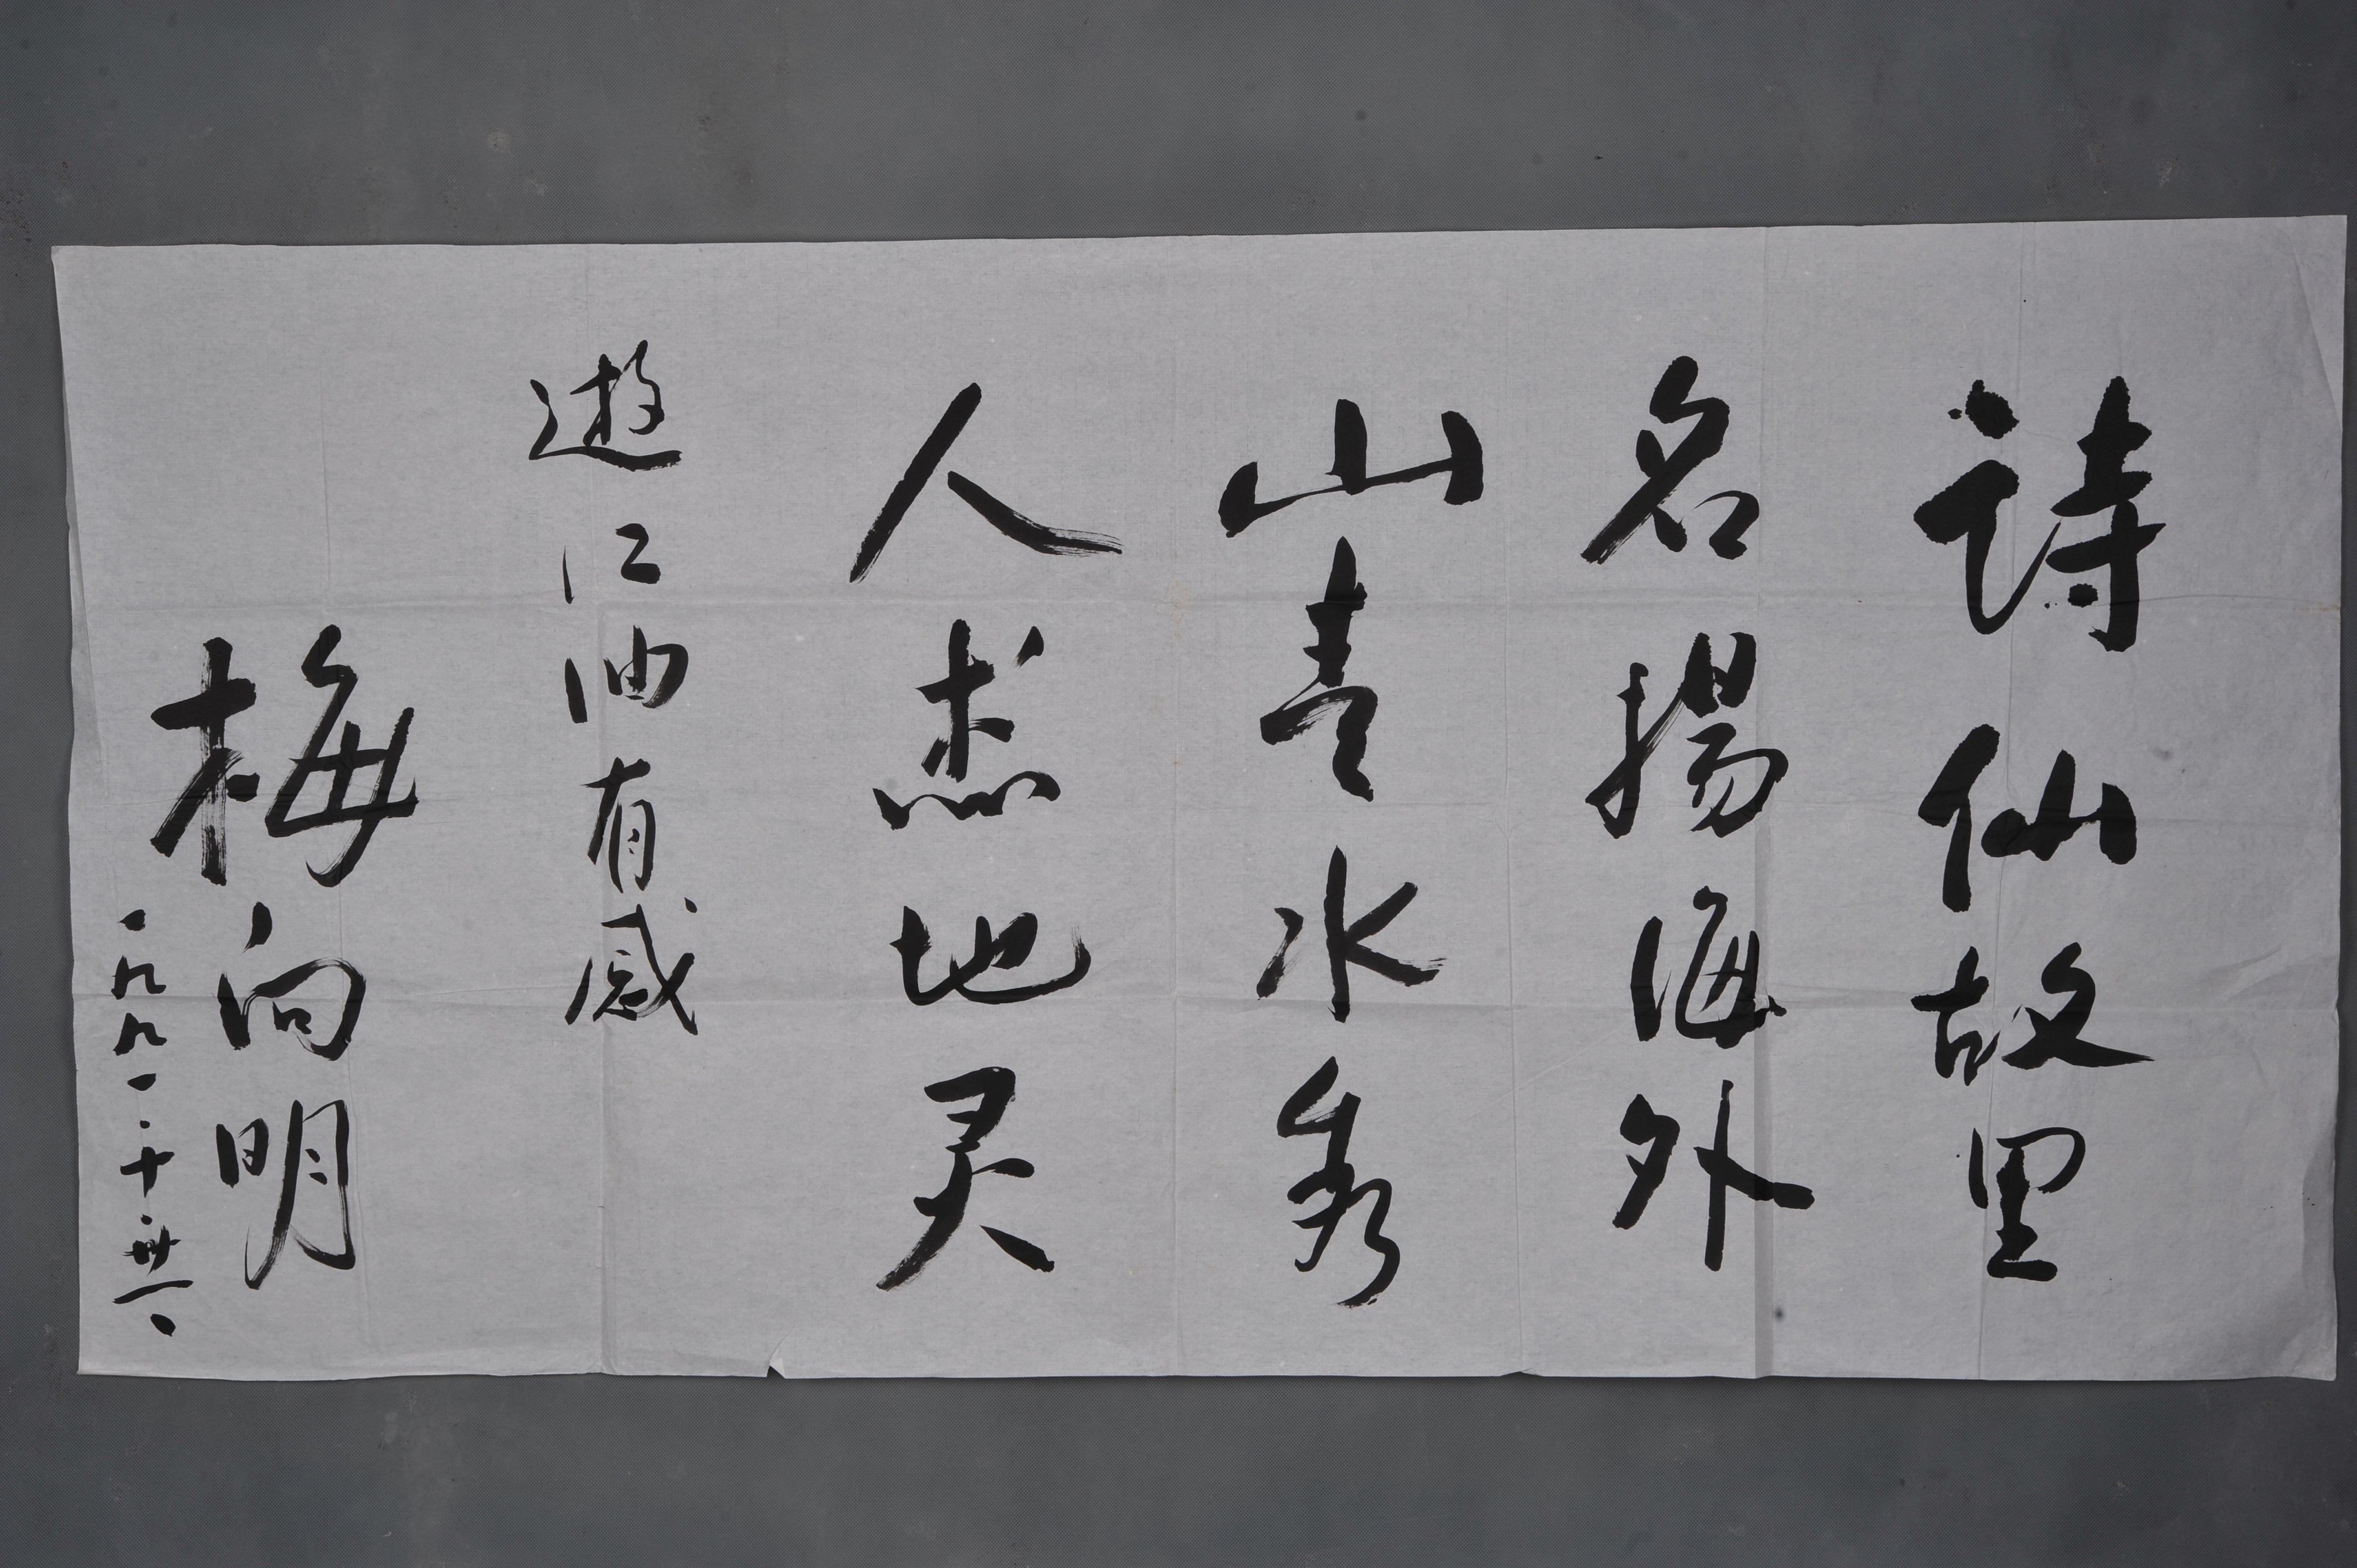 詩仙故里
名揚海外
山青水秀
人杰地灵
遊江油有感
梅向明
一九九一.十.卅一、